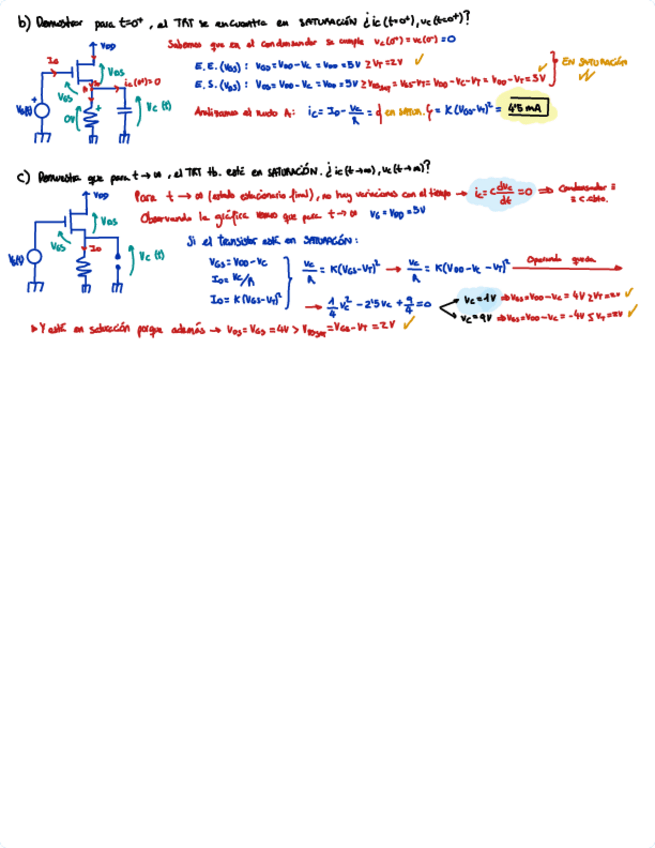 b) Demostrar para t=0⁺, el TRT se encuentra en SATURACIÓN ¿ic(t=0⁺), vc(t=0⁺)?
Sabemos que en el condensador se cumple vc(0⁺)=vc(0⁻)=0
E.E.(VGS): VGS=VDD-VC=VDD=5V≥VT=2V ✓
E.S.(VDS): VDS=VDD-VC=VDD=5V≥VDSsat=VGS-VT=VDD-VC-VT=VDD-VT=3V ✓
EN SATURACIÓN
Analizamos el nudo A: ic=ID-vc/R= {en satur.}=K(VGS-VT)²=4'5mA
VDD
ID
VDS
VGS
ic(0⁺)=0
0V
VG(t)
VC(t)
c) Demuestra que para t→∞, el TRT tb. está en SATURACIÓN. ¿ic(t→∞), vc(t→∞)?
Para t→∞ (estado estacionario final), no hay variaciones con el tiempo → ic=C dvc/dt=0 ⇒ Condensador ≡ c.abto.
Observando la gráfica vemos que para t→∞ VG=VDD=5V
VDD
VDS
VGS
ID
VG(t)
VC(t)
Si el transistor está en SATURACIÓN:
VGS=VDD-VC
ID=VC/R
ID=K(VGS-VT)²
vc/R=K(VGS-VT)² → vc/R=K(VDD-VC-VT)² Operando queda
→ 1/4 vc²-2'5vc+9/4=0
vc=1V ⇒ VGS=VDD-VC=4V≥VT=2V ✓
vc=9V ⇒ VGS=VDD-VC=-4V≤VT=2V ✓
▸Y está en saturación porque además → VDS=VGS=4V>VDSsat=VGS-VT=2V ✓